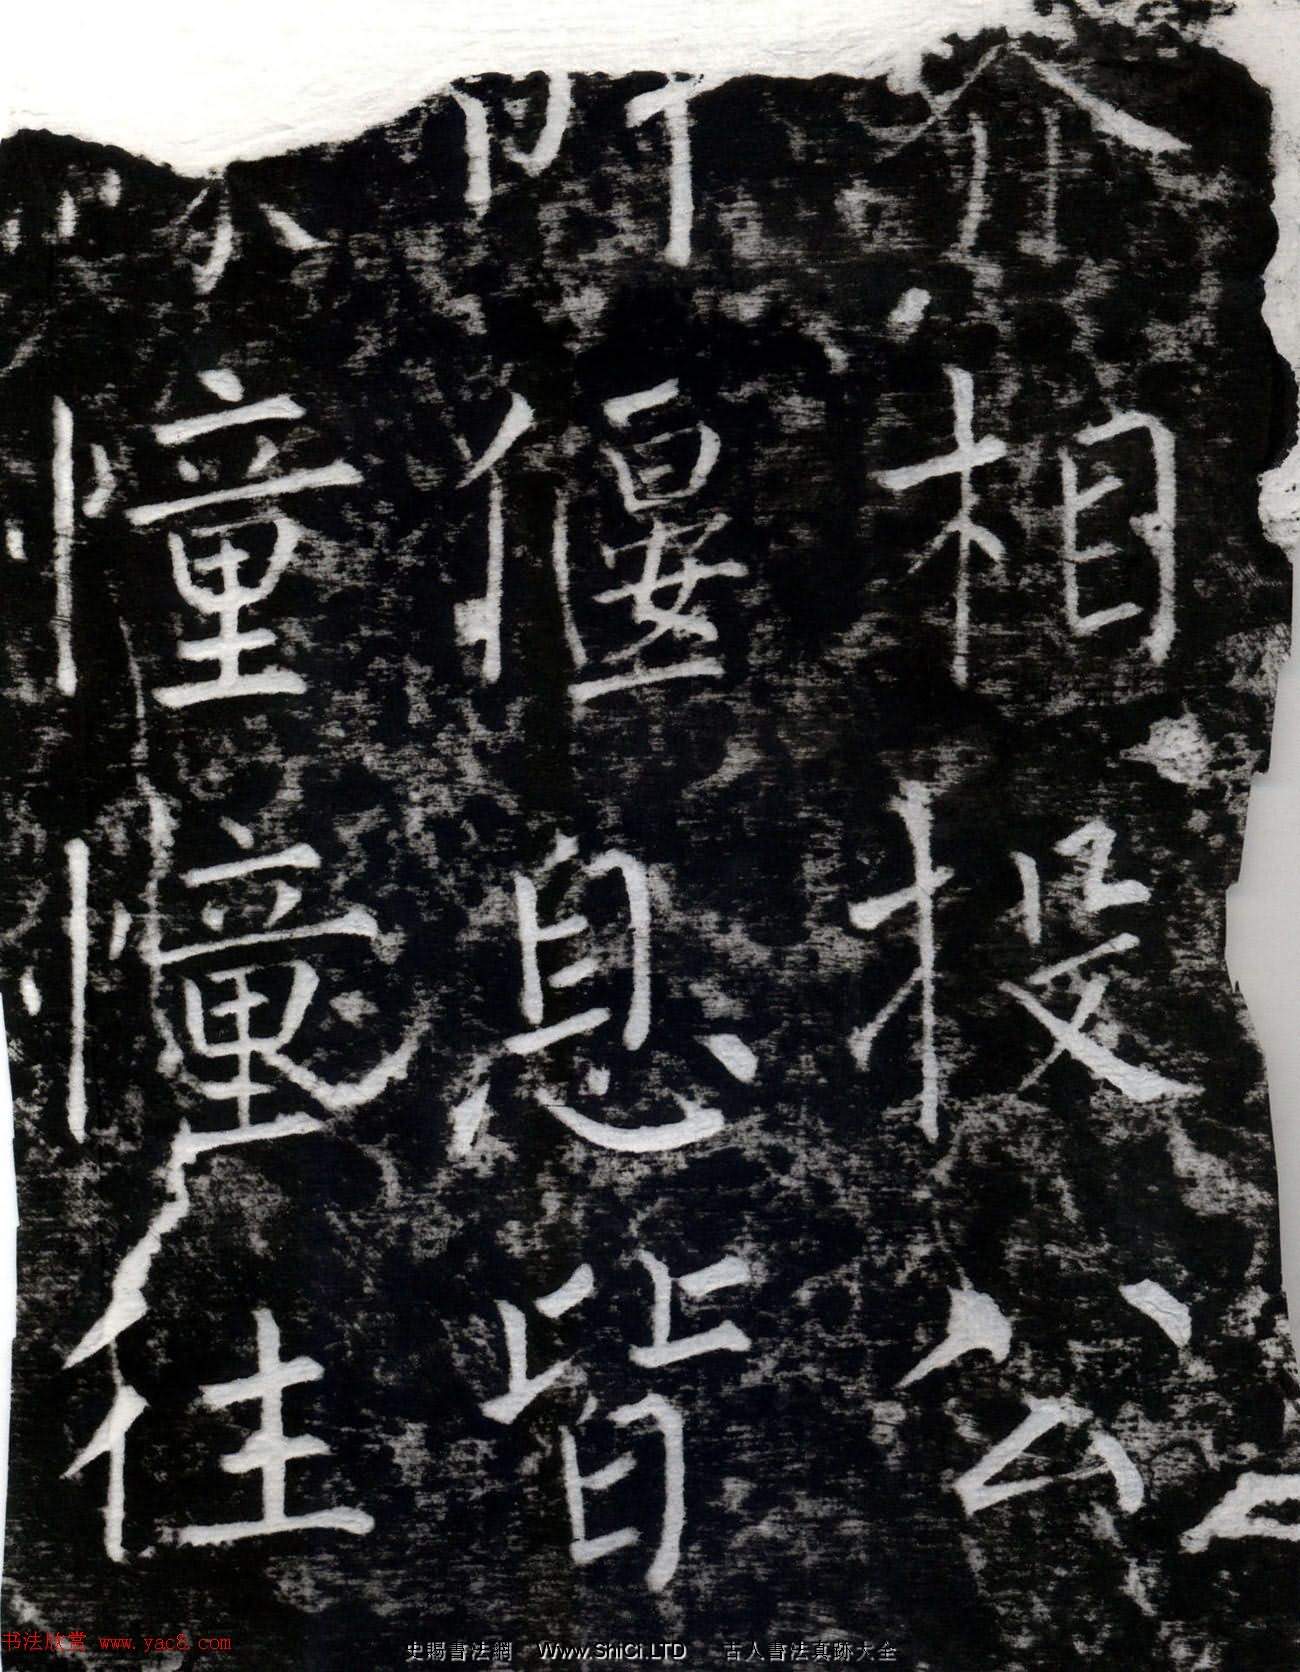 介相投公
所偃息皆
憧憧往
书法欣赏 www.yac8.com
史賜書法網 Www.ShiCi.LTD 古人書法真跡大全